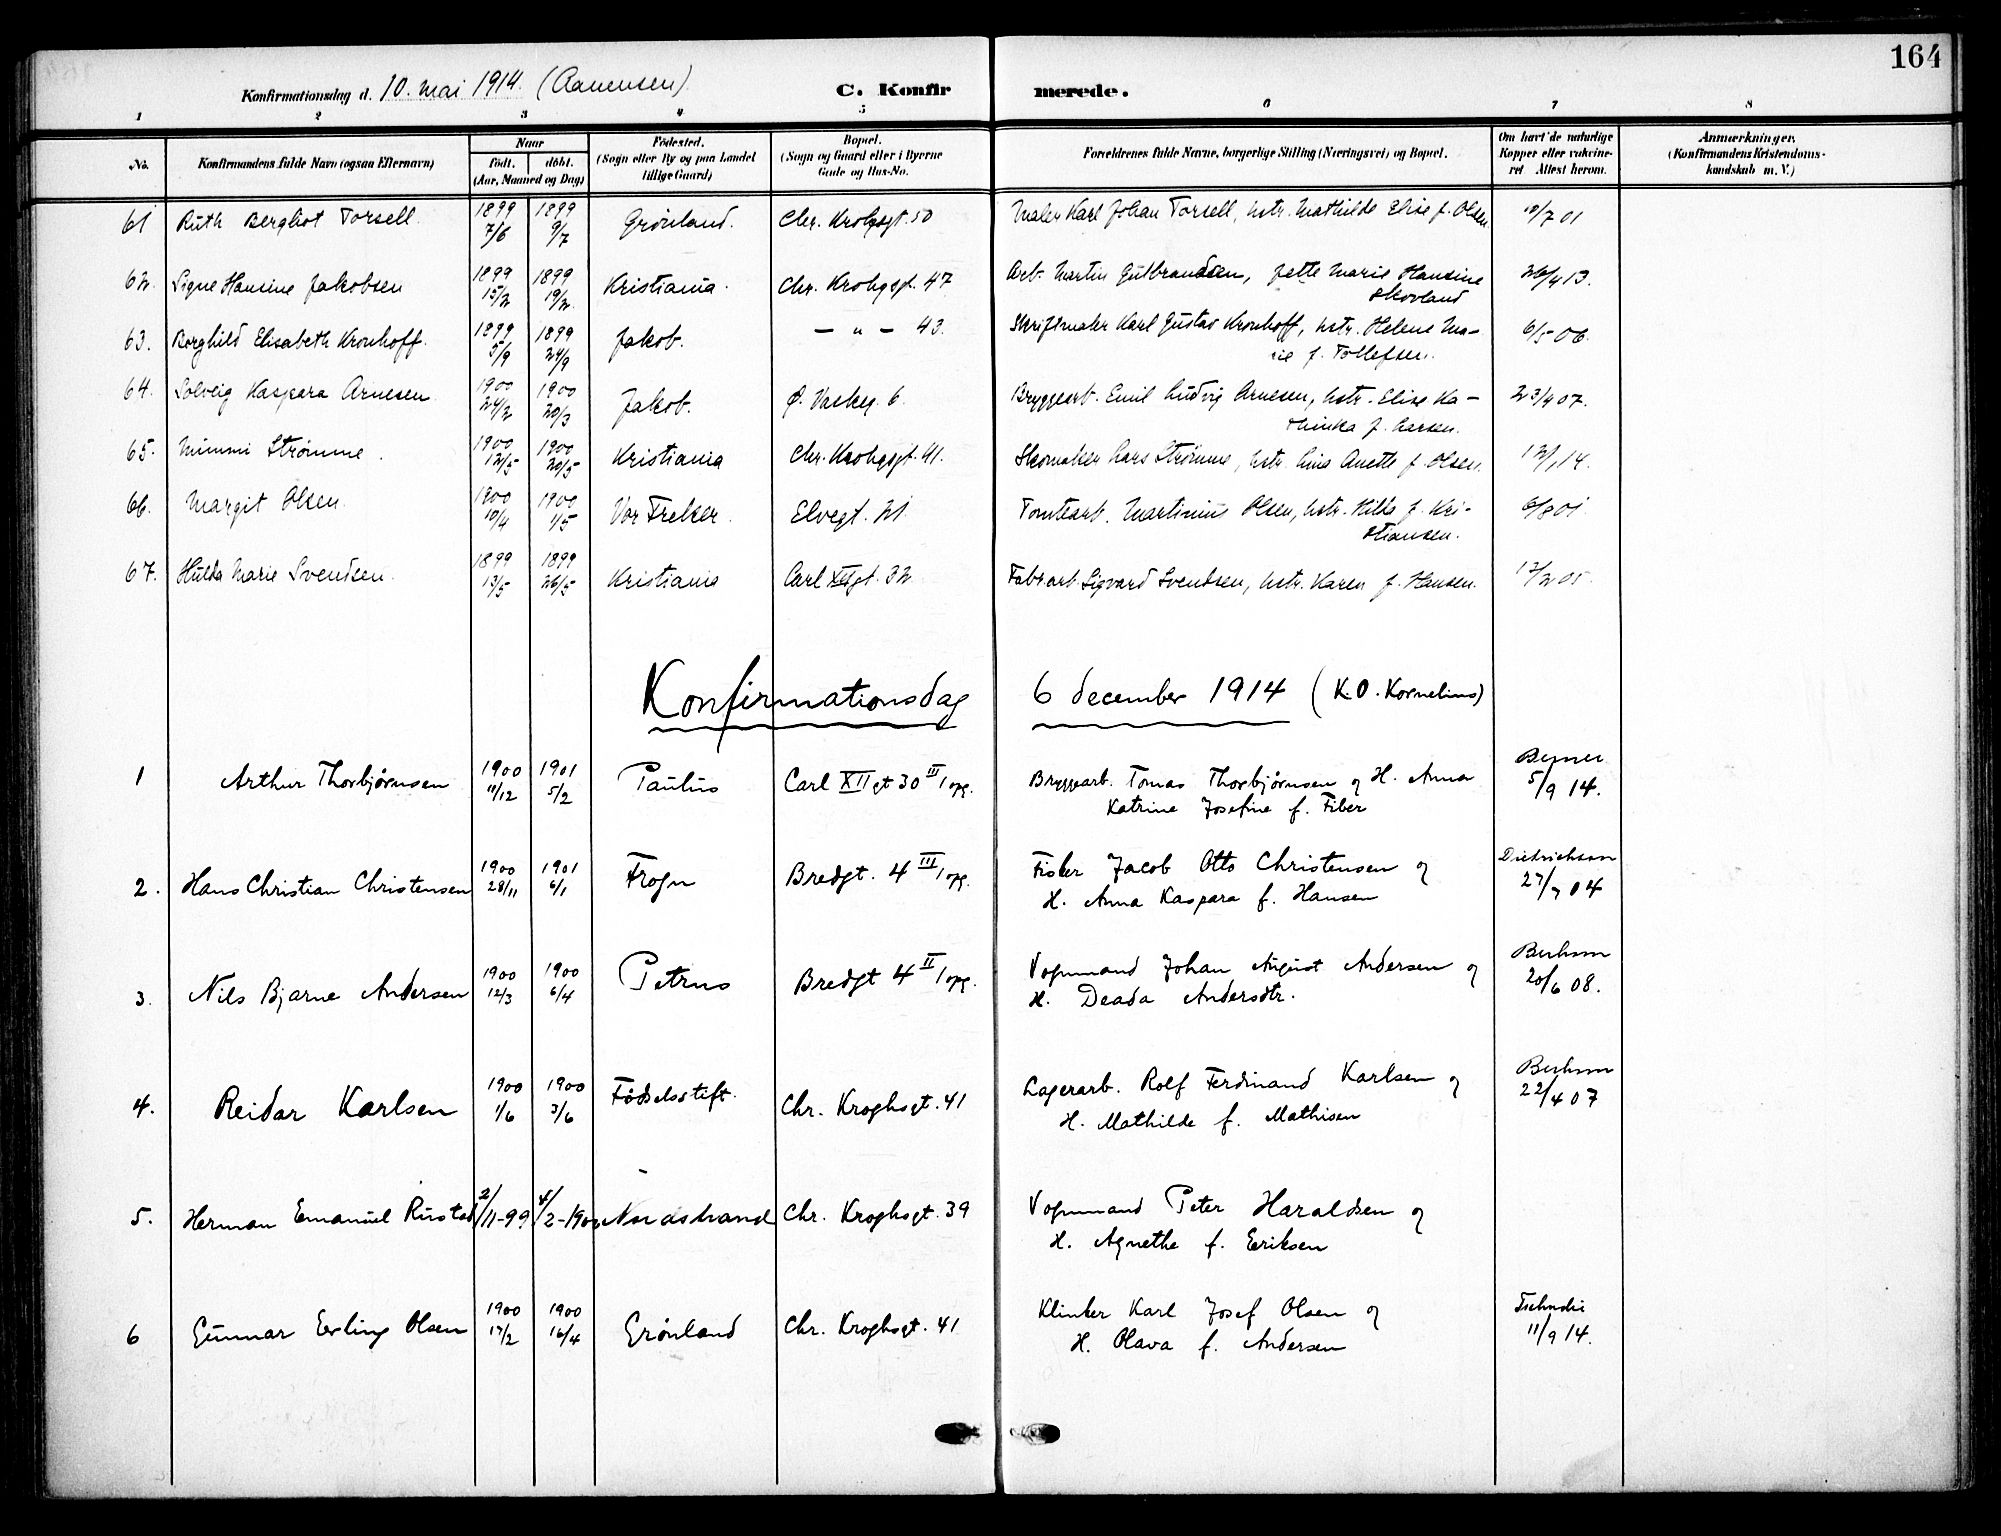 164
Konfirmationsdag d. 10. mai 1914. (Aanensen) C. Konfirmerede.
1 2 3 4 5 6 7 8
No. Konfirmandens fulde Navn (ogsaa Efternavn) Naar født. døbt. (Aar, Maaned og Dag) Fødested. (Sogn eller By og paa Landet tillige Gaard) Bopæl. (Sogn og Gaard eller i Byerne Gade og Hus-No. Forældrenes fulde Navne, borgerlige Stilling (Næringsvei) og Bopæl. Om havt de naturlige Kopper eller vakcineret Attest herom. Anmærkninger. (Konfirmandens Kristendomskundskab m. V.)
61 Ruth Bergliot Torsell. 1899 7/6 1899 9/7 Grønland. Chr. Krohgsgt. 50 Maler Karl Johan Torsell, hstr. Mathilde Elise f. Olsen 10/7 01
62. Signe Hansine Jakobsen 1899 15/2 1899 19/2 Kristiania. Chr. Krohgsgt. 47 Arb. Martin Gulbrandsen, Jette Marie Hansine
Skovland 26/4 13.
63. Borghild Elisabeth Kronhoff. 1899 5/9 1899 24/9 Jakob. — " — 43. Skriftmaler Karl Gustav Kronhoff, hstr. Helene Ma-
rie f. Tollefsen. 6/5 06.
64. Solveig Kaspara Arnesen 1900 24/2 1900 20/3 Jakob. Ø. Vaskeg. 6. Bryggearb. Emil Ludvig Arnesen, hstr. Elise Ka-
thinka f. Aasen. 23/4 07.
65. Mimmi Strømme. 1900 12/5 1900 20/5 Kristiania Chr. Krohgsgt. 41. Skomaker Lars Strømme, hstr. Lina Anette f. Olsen. 12/1 14.
66. Margit Olsen. 1900 10/4 1900 1/5 Vor Frelser. Elvegt. 21. Tomtearb. Martinius Olsen, hstr. Hilda f. Kri-
stiansen. 6/8 01.
67. Hulda Marie Svendsen. 1899 13/5 1899 26/5 Kristiania Carl XII gt. 32 Fabr.arb. Sigvard Svendsen, hstr. Karen f. Hansen. 17/2 05.
Konfirmationsdag 6 december 1914 (K.O. Kornelius)
1 Arthur Thorbjørnsen 1900 11/12 1901 5/2 Paulus Carl XII gt 30 III/opg. Bryggearb. Tomas Thorbjørnsen og H. Anna
Katrine Josefine f. Fiber 5/9 14.
2. Hans Christian Christensen 1900 28/11 1901 6/1 Frogn Bredgt. 4 III/opg. Fisker Jacob Otto Christensen og
H. Anna Kaspara f. Hansen Diedrichson 27/7 04
3. Nils Bjarne Andersen 1900 12/3 1900 6/4 Petrus Bredgt 4 II/opg. Vognmand Johan August Andersen og
H. Deada Andersdtr. 20/6 08.
4. Reidar Karlsen 1900 1/6 1900 3/6 Fødselsstift. Chr. Kroghsgt. 41 Lagerarb. Rolf Ferdinand Karlsen og
H. Mathilde f. Mathisen 22/4 07
5. Herman Emanuel Rustad 2/11-99 4/2-1900 Nordstrand Chr. Kroghsgt. 39 Vognmand Peter Haraldsen og
H. Agnethe f. Eriksen
6 Gunnar Erling Olsen 1900 17/2 1900 16/4 Grønland Chr. Kroghsgt. 41 Klinker Karl Josef Olsen og
H. Olava f. Andersen 11/9 14.